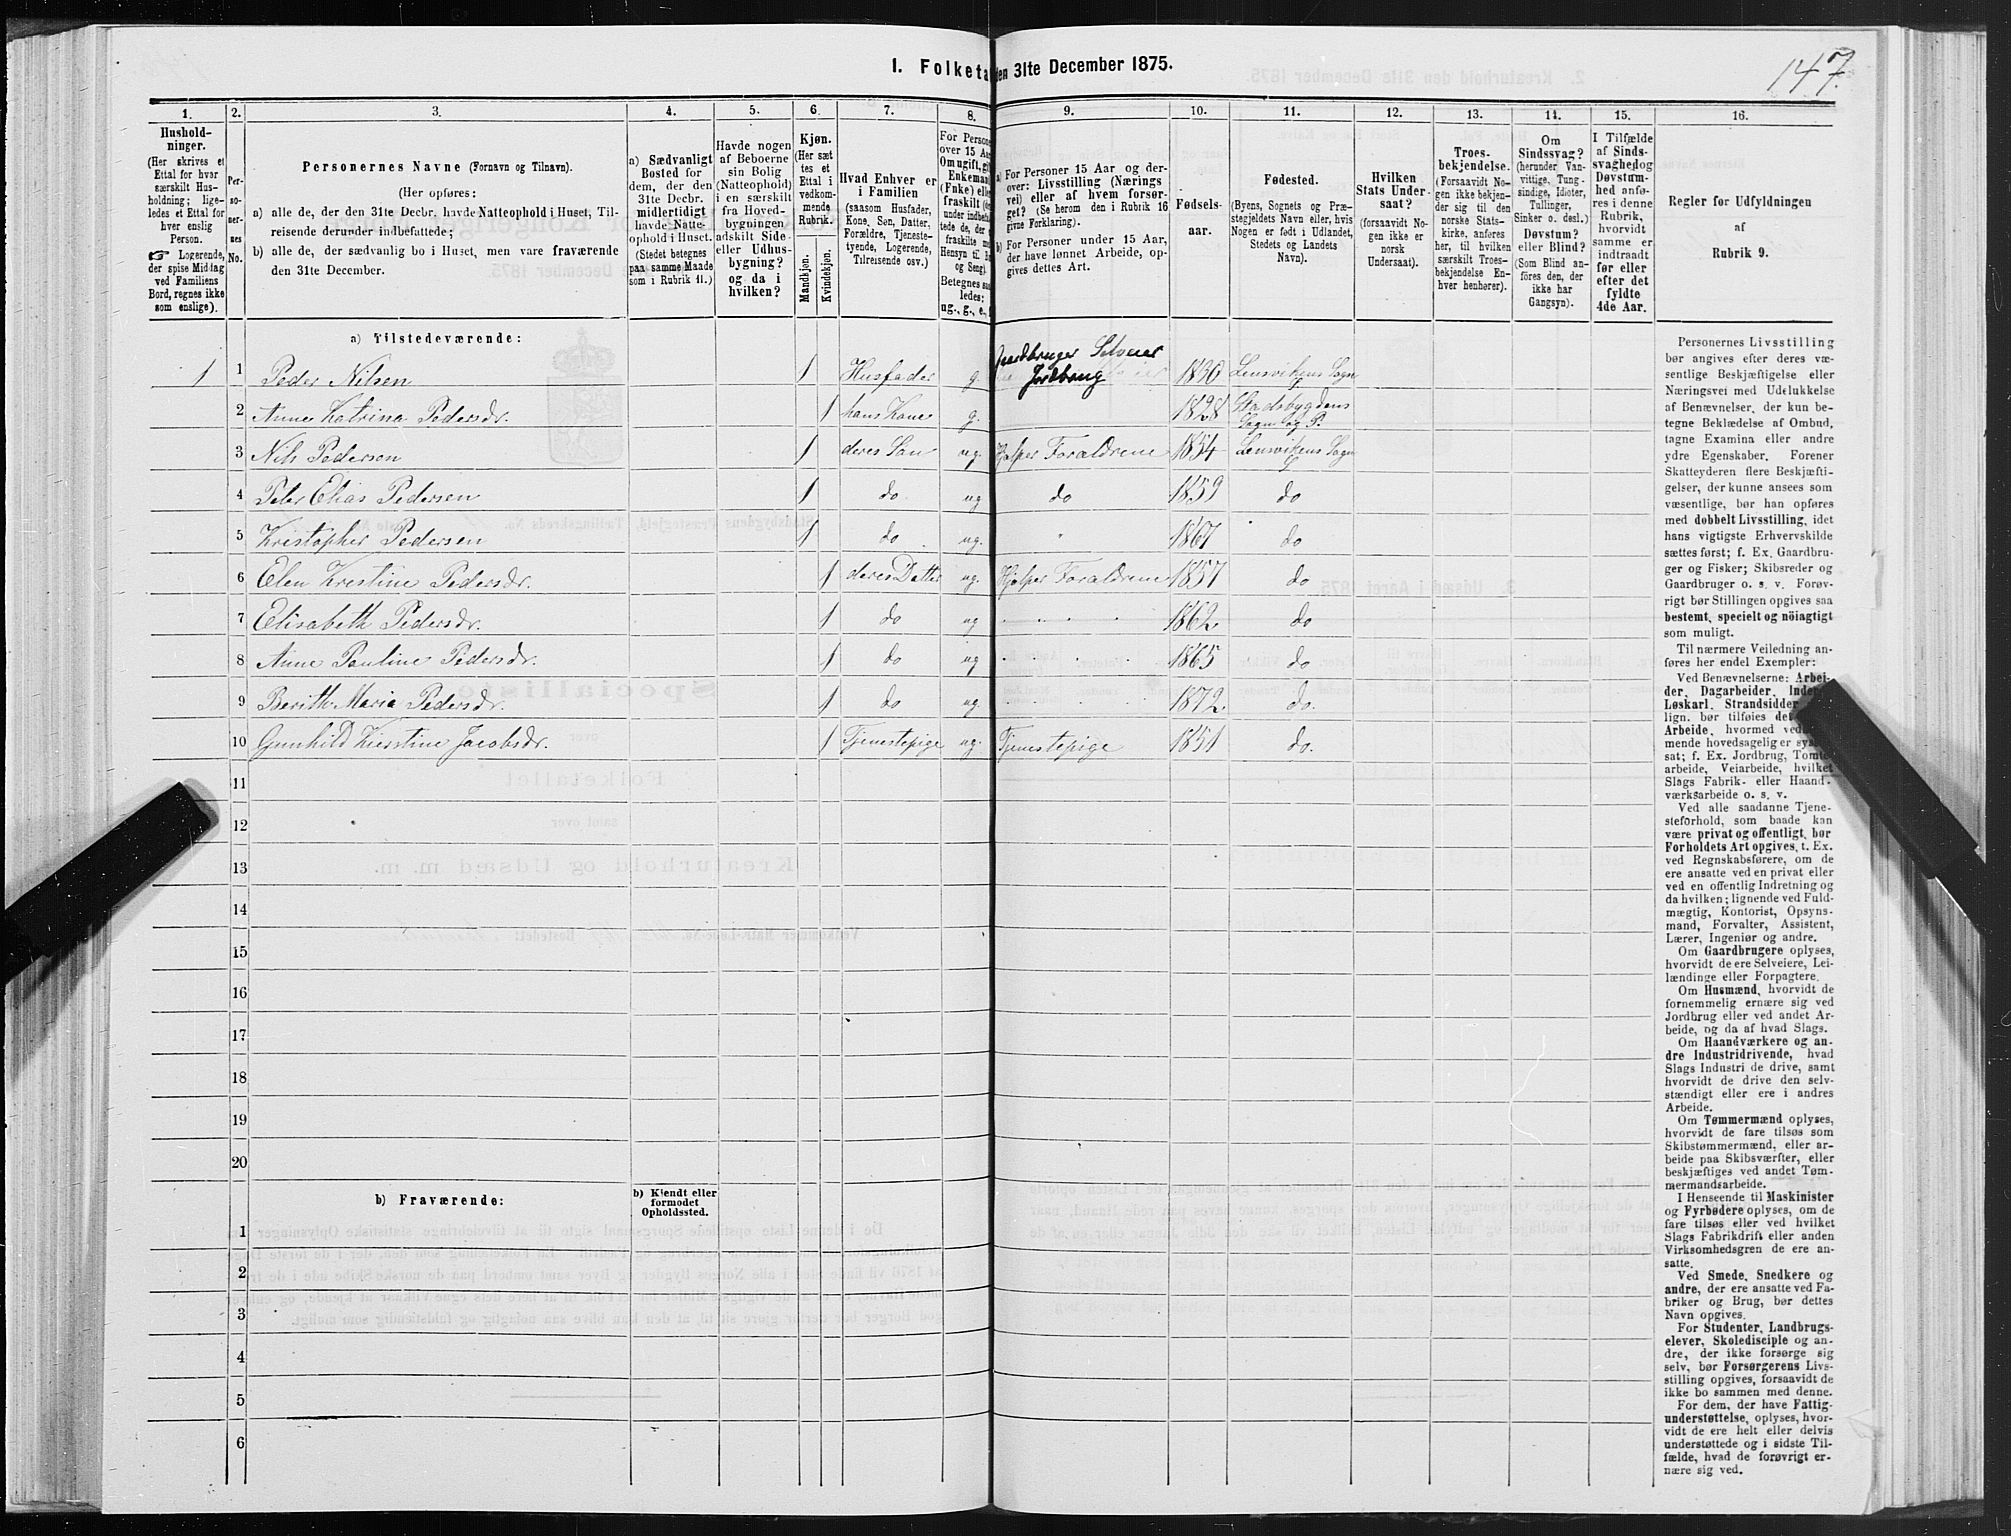 I. Folketa den 31te December 1875.
147.
1.
2.
3.
4.
5.
6.
7.
8.
9.
10.
11.
12.
13.
14.
15.
16.
Hushold-
ninger.
(Her skrives et
Ettal for hver
særskilt Hus-
holdning; lige-
ledes et Ettal for
hver enslig
Person.
☞ Logerende,
der spise Middag
ved Familiens
Bord, regnes ikke
som enslige).
Per-
so-
ner-
nes
No.
Personernes Navne (Fornavn og Tilnavn).
(Her opføres:
a) alle de, der den 31te Decbr. havde Natteophold i Huset, Til-
reisende derunder indbefattede;
b) alle de, der sædvanlig bo i Huset, men vare fraværende
den 31te December.
a) Sædvanligt
Bosted for
dem, der den
31te Decbr.
midlertidigt
havde Natte-
ophold i Huset.
(Stedet betegnes
paa samme Maade
som i Rubrik 11.)
Havde nogen
af Beboerne
sin Bolig
(Natteophold)
i en særskilt
fra Hoved-
bygningen
adskilt Side-
eller Udhus-
bygning?
og da i
hvilken?
Kjøn.
(Her sæt-
tes et
Ettal i
vedkom-
mende
Rubrik.
Mandkjøn.
Kvindekjøn.
Hvad Enhver er
i Familien
(saasom Husfader,
Kone, Søn, Datter,
Forældre, Tjeneste-
tyende, Logerende,
Tilreisende osv.)
For Person
over 15 Aa
Om ugift, gif
Enkeman
(Enke) elle
fraskilt
under indbef
tede de,
fraskilte
Hensyn til B
og Seng).
Betegnes sa
ledes:
ug., g., e.,
a) For Personer 15 Aar og der-
over: Livsstilling (Nærings
vei) eller af hvem forsør-
get? (Se herom den i Rubrik 16
givne Forklaring).
b) For Personer under 15 Aar,
der have lønnet Arbeide, op-
gives dettes Art.
Fødsels-
aar.
Fødested.
(Byens, Sognets og Præ-
stegjeldets Navn eller, hvis
Nogen er født i Udlandet,
Stedets og Landets
Navn).
Hvilken
Stats Under-
saat?
(forsaavidt No-
gen ikke er
norsk
Undersaat).
Troes-
bekjendelse.
(Forsaavidt No-
gen ikke bekjen-
der sig til den
norske Stats-
kirke, anføres
her, til hvilken
særskilt Troes-
bekjendelse En-
hver henhører).
Om
Sindssvag?
(herunder Van-
vittige, Tung-
sindige, Idioter,
Tullinger,
Sinker o. desl.)
Døvstum?
eller Blind?
(Som Blind an-
føres den, der
ikke har
Gangsyn).
I Tilfælde
af Sinds-
svaghed og
Døvstum-
hed anfø-
res i denne
Rubrik,
hvorvidt
samme er
indtraadt
før eller
efter det
fyldte
4de Aar.
Regler for Udfyldningen
af
Rubrik 9.
a) Tilstedeværende:
1 1 Peder Nilsen 1 Husfader g. Gaardbruger Selveier Jordbrug 1830 Lensvikens Sogn
2 Anne Katrina Pedersdr. 1 hans Kone g. 1828 Stadsbygdens Sogn og P.
3 Nils Pedersen 1 deres Søn ug. Hjælper Forældrene 1854 Lensvikens Sogn
4 Peter Elias Pedersen 1 do ug do 1859 do
5 Kristopher Pedersen 1 do. ug. " 1867 do
6 Elen Kristine Pedersdr. 1 deres Datter ug. Hjælper Forældrene 1857 do
7 Elisabeth Pedersdr. 1 do ug 1862 do
8 Anne Pauline Pedersdr. 1 do ug 1865 do
9 Berith Maria Pedersdr. 1 do ug. 1872. do.
10 Gunhild Kirstine Jacobsdr. 1 Tjenestepige ug. Tjenestepige 1851 do.
11
12
13
14
15
16
17
18
19
20
b) Fraværende:
b) Kjendt eller
formodet
Opholdssted.
1
2
3
4
5
6
Personernes Livsstilling
bør angives efter deres væ-
sentlige Beskjæftigelse eller
Næringsvei med Udelukkelse
af Benævnelser, der kun be-
tegne Beklædelse af Ombud,
tagne Examina eller andre
ydre Egenskaber. Forener
Skatteyderen flere Beskjæfti-
gelser, der kunne ansees som
væsentlige, bør han opføres
med dobbelt Livsstilling, idet
hans vigtigste Erhvervskilde
sættes først; f. Ex. Gaardbru-
ger og Fisker; Skibsreder og
Gaardbruger o. s. v. Forøv-
rigt bør Stillingen opgives saa
bestemt, specielt og nöiagtigt
som muligt.
Til nærmere Veiledning an-
føres her endel Exempler:
Ved Benævnelserne: Arbei-
der, Dagarbeider, Inder
Løskarl, Strandsidder
lign. bør tilføies det
Arbeide, hvormed ved
mende hovedsagelig er sys
sat; f. Ex. Jordbrug, Tomte-
arbeide, Veiarbeide, hvilket
Slags Fabrik- eller Haand-
værksarbeide o. s. v.
Ved alle saadanne Tjene-
steforhold, som baade kan
være privat og offentligt, bør
Forholdets Art opgives, t. Ex.
ved Regnskabsførere, om de
ere ansatte ved en privat eller
ved en offentlig Indretning og
da hvilken; lignende ved Fuld-
mægtig, Kontorist, Opsyns-
mand, Forvalter, Assistent,
Lærer, Ingeniør og andre.
Om Gaardbrugere oplyses,
hvorvidt de ere Selveiere, Lei-
lændinge eller Forpagtere.
Om Husmænd, hvorvidt de
fornemmelig ernære sig ved
Jordbrug eller ved andet Ar-
beide, og da af hvad Slags.
Om Haandværkere og an-
dre Industridrivende, hvad
Slags Industri de drive, samt
hvorvidt de drive den selv-
stændigt eller ere i andres
Arbeide.
Om Tømmermænd oplyses,
hvorvidt de fare tilsøs som
Skibstømmermænd, eller ar-
beide paa Skibsværfter, eller
beskjæftiges ved andet Tøm-
mermandsarbeide.
I Henseende til Maskinister
og Fyrbødere oplyses, om de
fare tilsøs eller ved hvilket
Slags Fabrikdrift eller anden
Virksomhedsgren de ere an-
satte.
Ved Smede, Snedkere og
andre, der ere ansatte ved Fa-
briker og Brug, bør dettes
Navn opgives.
For Studenter, Landbrugs-
elever, Skoledisciple og an-
dre, der ikke forsørge sig
selv, bør Forsørgerens Livs-
stilling opgives, forsaavidt de
ikke bo sammen med denne.
For dem, der have Fattig-
understøttelse, oplyses, hvor-
vidt de ere helt eller delvis
understøttede og i sidste Til-
fælde, hvad de forøvrigt er-
nære sig ved.